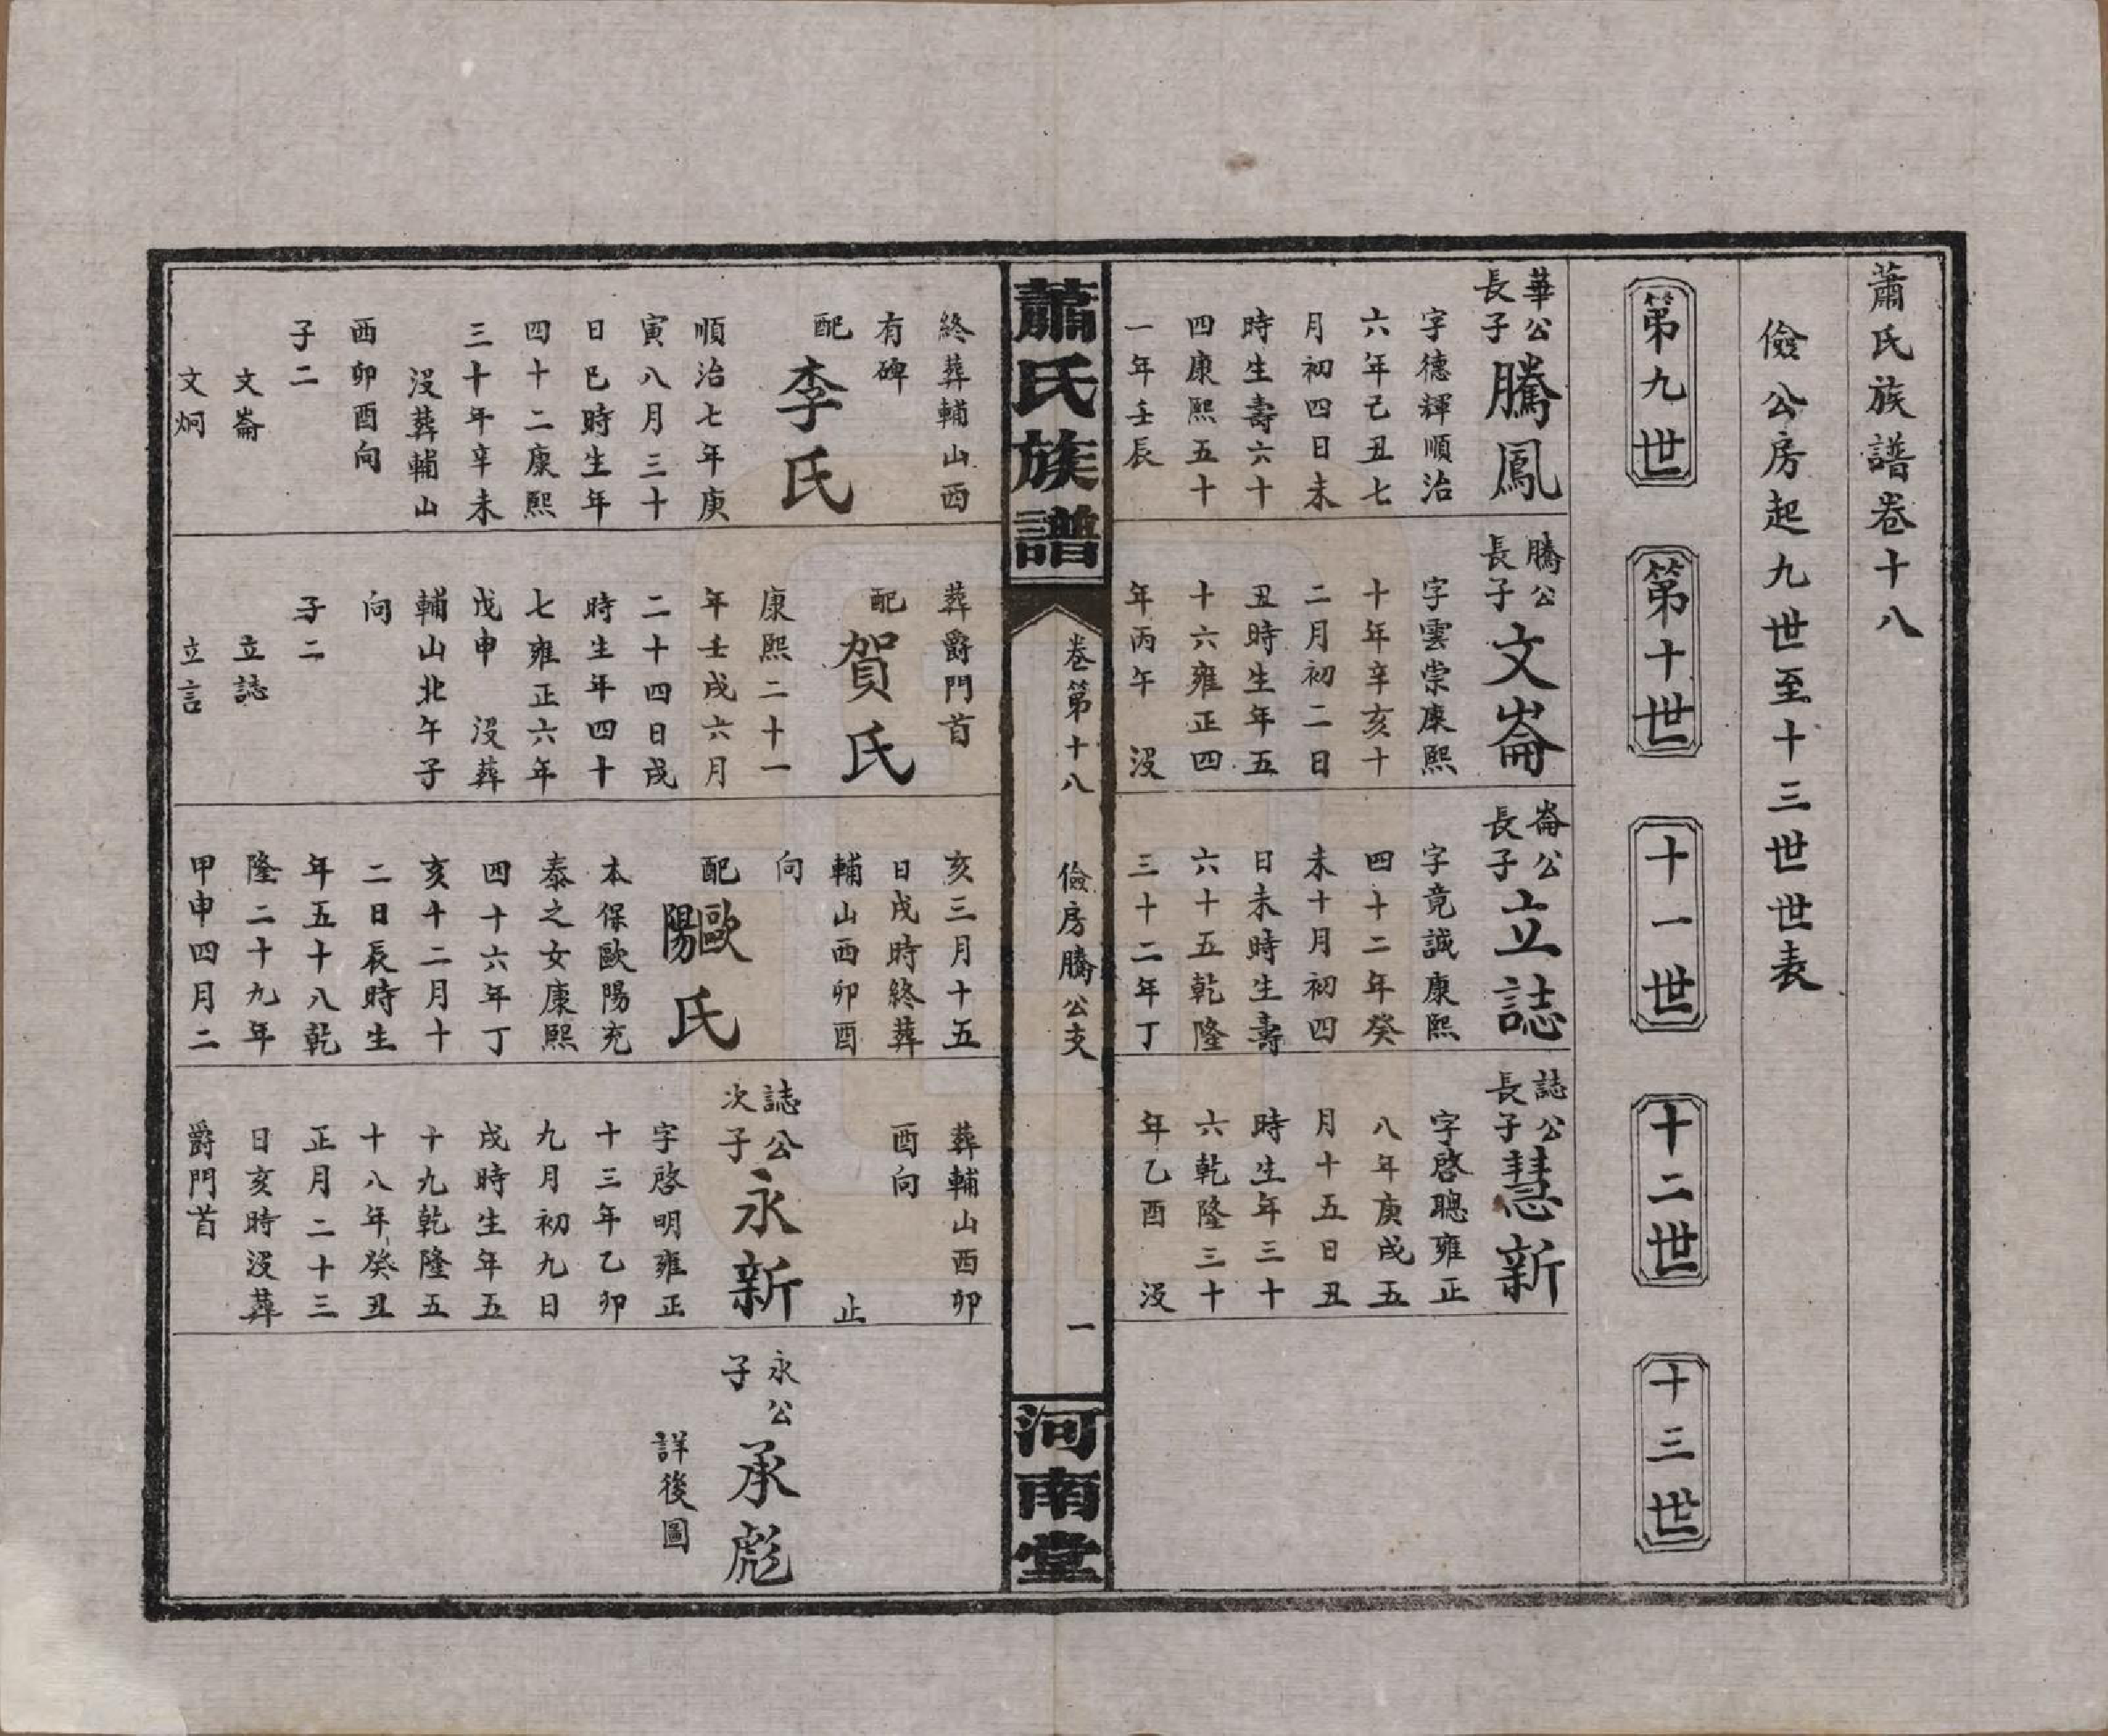 蕭氏族譜卷十八
儉公房起九世至十三世世表
第九世
第十世
十一世
十二世
十三世
華公
長子
騰鳳
字德輝順治
六年己丑七
月初四日未
時生壽六十
四康熙五十
一年壬辰
騰公
長子
文崙
字雲崇康熙
十年辛亥十
二月初二日
丑時生年五
十六雍正四
年丙午 沒
崙公
長子
立誌
字竟誠康熙
四十二年癸
未十月初四
日未時生壽
六十五乾隆
三十二年丁
誌公
長子
慧新
字啓聰雍正
八年庚戌五
月十五日丑
時生年三十
六乾隆三十
年乙酉 沒
蕭氏族譜
卷第十八
儉房騰公支
一
河南堂
終葬輔山西
有碑
配
李氏
順治七年庚
寅八月三十
日巳時生年
四十二康熙
三十年辛未
沒葬輔山
酉卯酉向
子二
文崙
文炯
葬爵門首
配
賀氏
康熙二十一
年壬戌六月
二十四日戌
時生年四十
七雍正六年
戊申 沒葬
輔山北午子
向
子二
立誌
立言
亥三月十五
日戌時終葬
輔山西卯酉
向
配
歐陽氏
本保歐陽充
泰之女康熙
四十六年丁
亥十二月十
二日辰時生
年五十八乾
隆二十九年
甲申四月二
葬輔山西卯
酉向
止
誌公
次子
永新
字啓明雍正
十三年乙卯
九月初九日
戌時生年五
十九乾隆五
十八年癸丑
正月二十三
日亥時沒葬
爵門首
永公
子
承彪
詳後圖